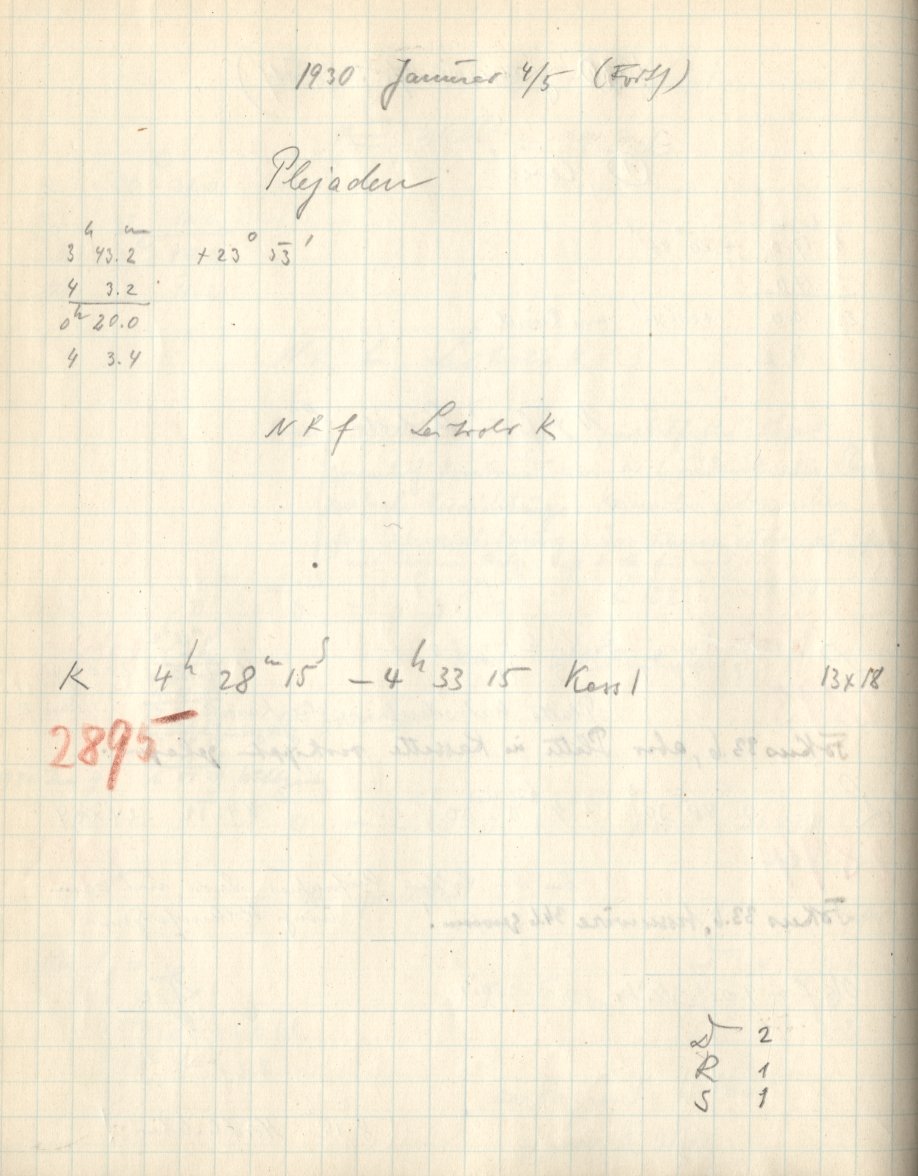 1930 Januar 4/5 (Forts)
Plejaden
3 h 43.2 m +23° 53'
4 3.2
0 h 20.0
4 3.4
N R f K
K 4 h 28 m 15 s – 4 h 33 15 Kass 1 13x18
2895
D 2
R 1
S 1